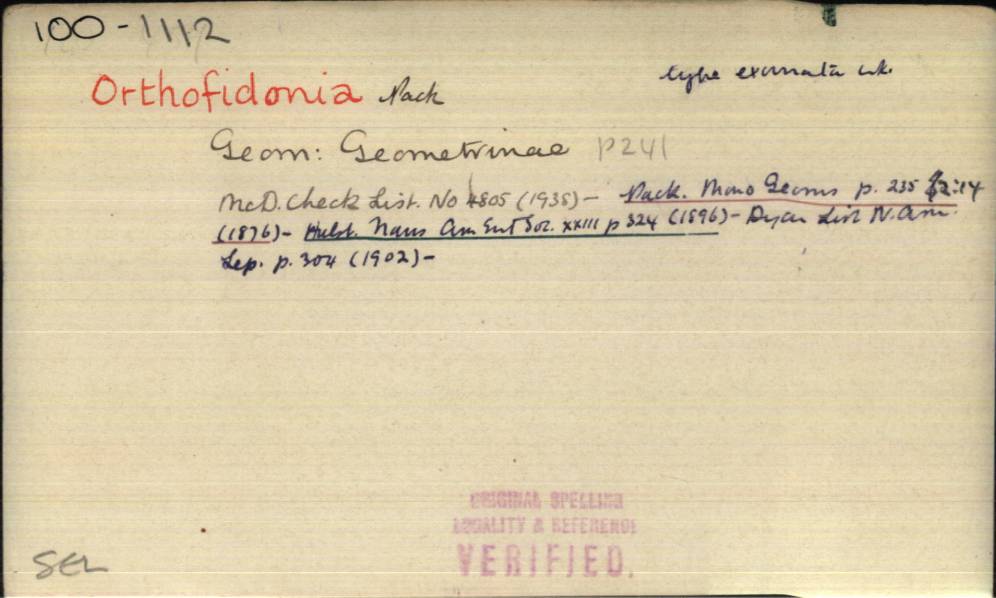 100-1112
type exornata wk.
Orthofidonia Pack
Geom: Geometrinae P241
McD. Check List. No 4805 (1938) - Pack. Mono Geoms p. 235 f2:14
(1876) - Hulst. Trans Am Ent Soc. xxiii p 324 (1896) - Dyar List N. Am.
Lep. p. 304 (1902) -
ORIGINAL SPELLING
LOCALITY & REFERENCE
VERIFIED.